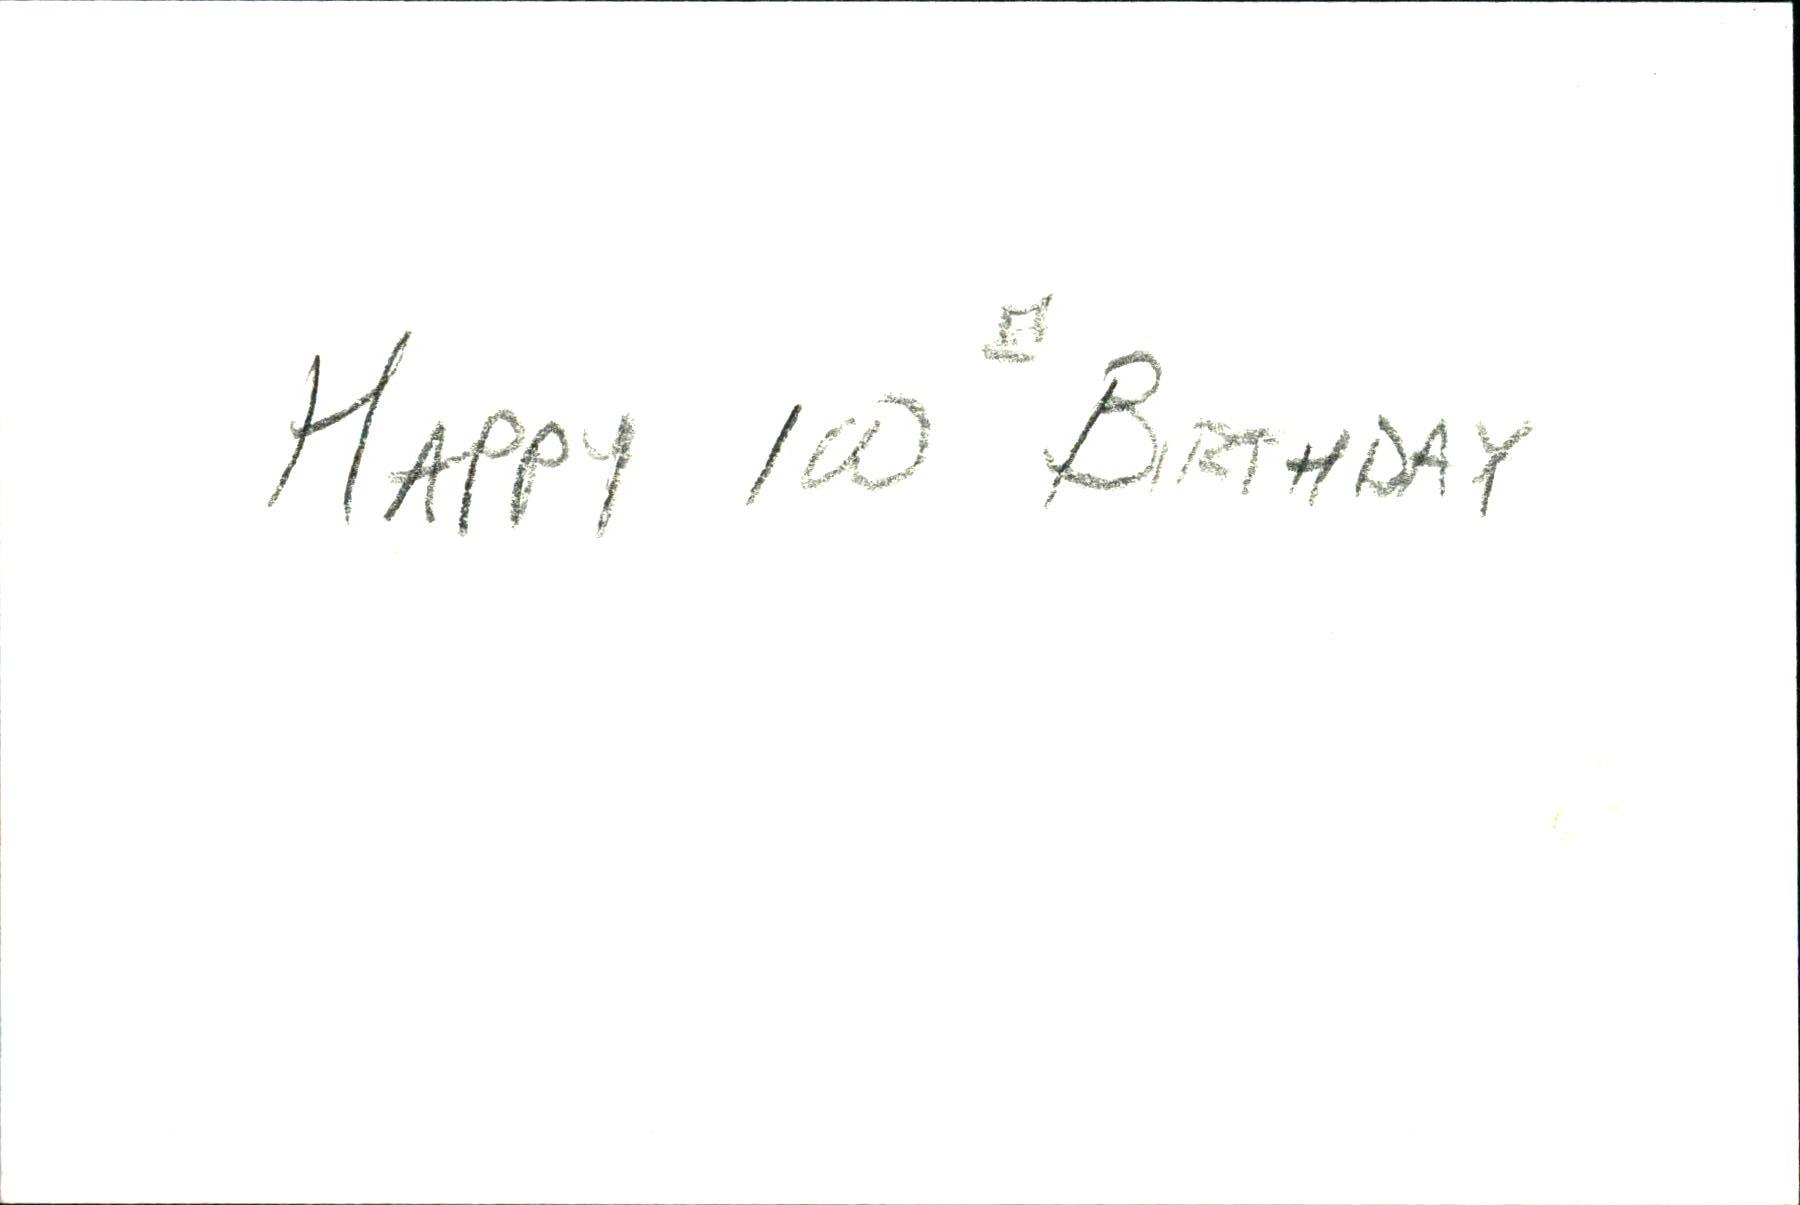 HAPPY 100TH BIRTHDAY